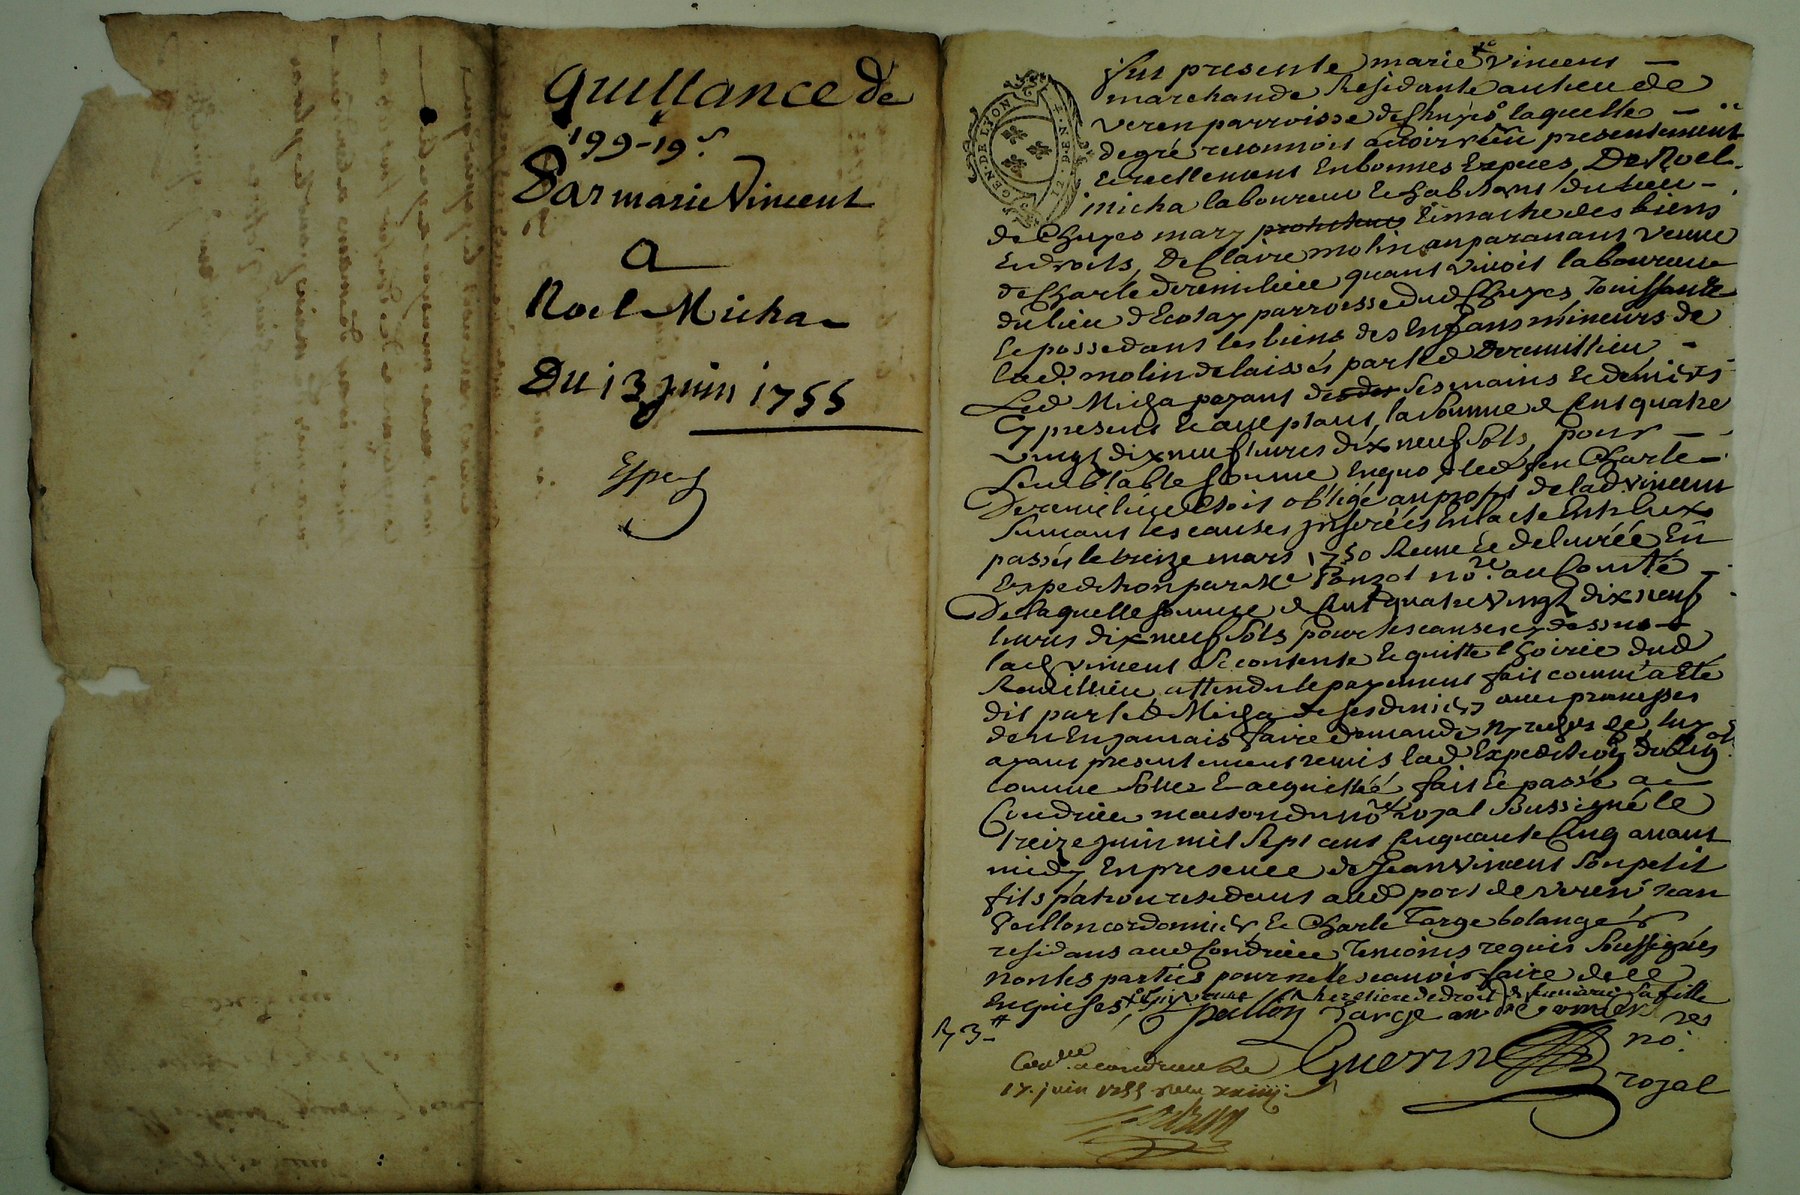 Quittance de
199-19s
Par marie Vincent
a
Noel Micha
Du 13 juin 1755
Exped
GEN. DE LYON
fut presente marie Vincent
marchande Residante au lieu de
veren parroisse de Chuyes laquelle
de gré reconnois avoir reçu presentement
et reellement en bonnes Expeces De Noel
micha laboureur et habitant du lieu
de Chuyes mary et maitre des biens
et droits de Claire molin auparavant veuve
de Charle deremilieu quant vivoit laboureur
du lieu d'Ecotay parroesse dud Chuyes Jouissante
et possedans les biens des Enfans mineurs de
lad. molin delaissés par led Deremillieu
Led Micha payant de ses mains et deniers
Cy present et acceptant, la somme de Cent quatre
vingt dix neuf livres dix neuf sols, pour
semblable somme en quoy led feu Charle
Deremilieu etoit obligé au profit de lad vincent
suivant les causes inserées en l'acte entr'eux
passés le treize mars 1750 et delivrée En
Expedition par Me no.re au Comté
De laquelle somme de Cent quatre vingt dix neuf
livres dix neuf sols pour les causes cy dessus
lad vincent se contente et quitte l'hoirie dud
Remillieu attendu le payement fait comm'a eté
dit par led Micha de ses deniers avec promesses
de n'En jamais faire demande ny recherche luy
ayant presentement remis lad Expedition
comme sollue et acquittée fait et passé a
Condrieu maison du no.re royal soussigné le
treize juin mil sept cent cinquante Cinq avant
midy En presence de Jean vincent son petit
fils patron residant aud port de veren Jean
paillon cordonnier, et Charle Targe bolanger
residans aud Condrieu temoins requis soussignés
non les parties pour ne le scavoir faire de ce
Enquises heretiere de droit sa fille
paillon Targe
R 3#
Guerin no.re
royal
Con.lle a condrieu le
17. juin 1755 reçu